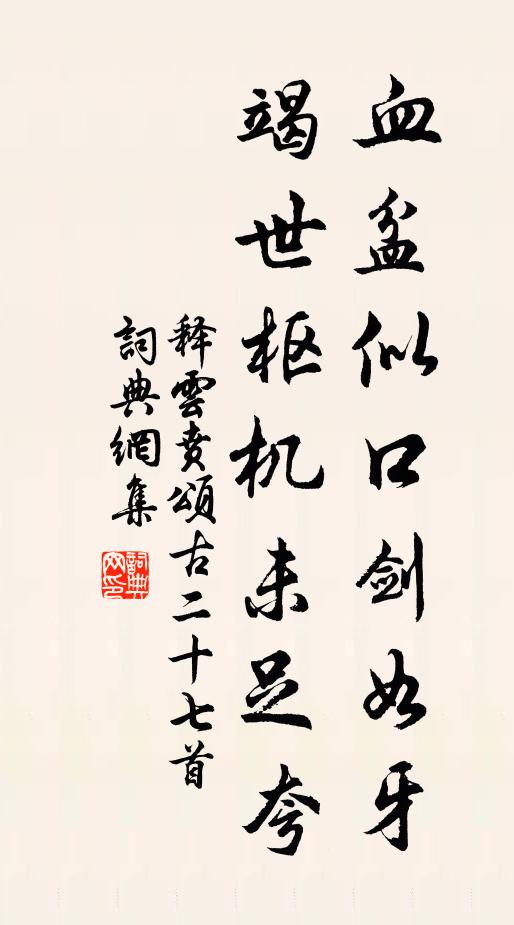 血盆似口剑如牙
竭世枢机未足夸
释雲賁頌古二十七首
詞典網集
詞典网印